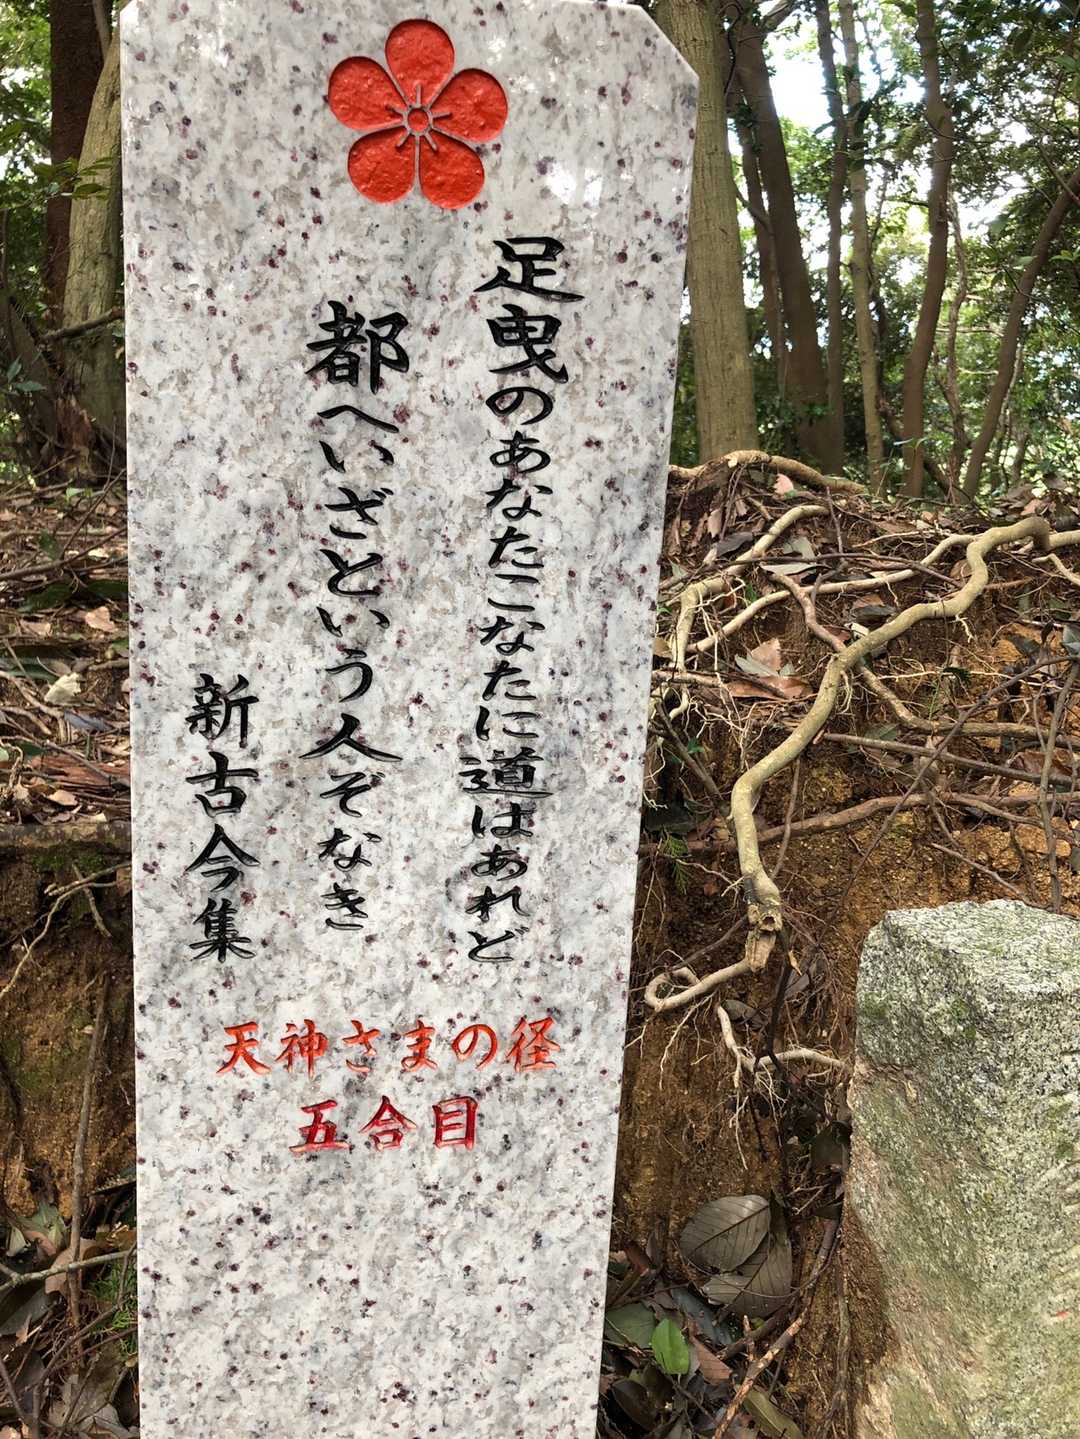 足曳のあなたこなたに道はあれど
都へいざという人ぞなき
新古今集
天神さまの径
五合目